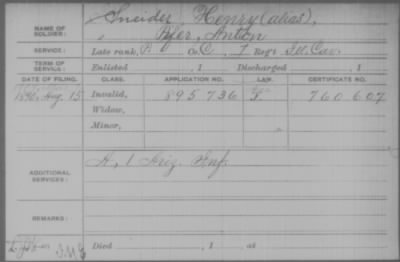 NAME OF SOLDIER: Sneider, Henry (alias),
" Anton
SERVICE: Late rank, P Co. C, 1 Reg't Cav.
TERM OF SERVICE: Enlisted , 1 Discharged , 1
DATE OF FILING. CLASS. APPLICATION NO. LAW. CERTIFICATE NO.
1890, Aug. 15 Invalid, 895 736 760 607
Widow,
Minor,
ADDITIONAL SERVICES: A, 1 Inf.
REMARKS:
Died , 1 , at